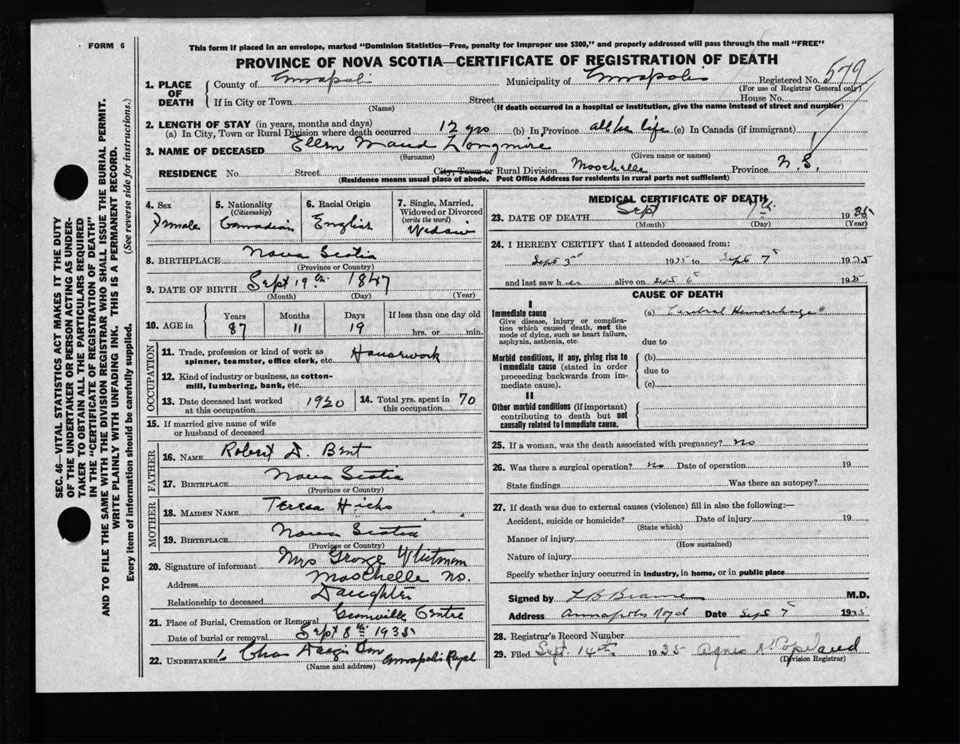 FORM 6
This form if placed in an envelope, marked "Dominion Statistics—Free, penalty for improper use $300," and properly addressed will pass through the mail "FREE"
PROVINCE OF NOVA SCOTIA—CERTIFICATE OF REGISTRATION OF DEATH
1. PLACE OF DEATH
County of Annapolis Municipality of Annapolis Registered No. 579
(For use of Registrar General only)
If in City or Town Street House No.
(Name) (If death occurred in a hospital or institution, give the name instead of street and number)
2. LENGTH OF STAY (in years, months and days)
(a) In City, Town or Rural Division where death occurred 12 yrs (b) In Province all her life (c) In Canada (if immigrant)
3. NAME OF DECEASED Ellen Maud Longmire
(Surname) (Given name or names)
RESIDENCE No. Street City, Town or Rural Division Moschelle Province N.S.
(Residence means usual place of abode. Post Office Address for residents in rural parts not sufficient)
4. Sex
Female
5. Nationality
(Citizenship)
Canadian
6. Racial Origin
English
7. Single, Married, Widowed or Divorced
(write the word)
Widow
8. BIRTHPLACE Nova Scotia
(Province or Country)
9. DATE OF BIRTH Sept 19th 1847
(Month) (Day) (Year)
10. AGE in
Years Months Days If less than one day old
87 11 19 hrs. or min.
OCCUPATION
11. Trade, profession or kind of work as spinner, teamster, office clerk, etc. Housework
12. Kind of industry or business, as cotton-mill, lumbering, bank, etc.
13. Date deceased last worked at this occupation 1920
14. Total yrs. spent in this occupation 70
15. If married give name of wife or husband of deceased
FATHER
16. NAME Robert D. Bent
17. BIRTHPLACE Nova Scotia
(Province or Country)
MOTHER
18. MAIDEN NAME Teresa Hicks
19. BIRTHPLACE Nova Scotia
(Province or Country)
20. Signature of informant Mrs George Whitman
Address Moschelle NS.
Relationship to deceased Daughter
21. Place of Burial, Cremation or Removal Centre
Date of burial or removal Sept 8th 1935
22. UNDERTAKER Chas Son Annapolis Royal
(Name and address)
MEDICAL CERTIFICATE OF DEATH
23. DATE OF DEATH Sept 7th 1935
(Month) (Day) (Year)
24. I HEREBY CERTIFY that I attended deceased from:
Sept 3rd 1935 to Sept 7 1935
and last saw her alive on Sept 6 1935
CAUSE OF DEATH
I
Immediate cause
Give disease, injury or complication which caused death, not the mode of dying, such as heart failure, asphyxia, asthenia, etc.
(a) Cerebral Hemorrhage
due to
Morbid conditions, if any, giving rise to immediate cause (stated in order proceeding backwards from immediate cause).
(b)
due to
(c)
II
Other morbid conditions (if important) contributing to death but not causally related to immediate cause.
25. If a woman, was the death associated with pregnancy? no
26. Was there a surgical operation? no Date of operation 19
State findings Was there an autopsy?
27. If death was due to external causes (violence) fill in also the following:—
Accident, suicide or homicide? Date of injury 19
(State which)
Manner of injury
(How sustained)
Nature of injury
Specify whether injury occurred in industry, in home, or in public place
Signed by M.D.
Address Annapolis Royal Date Sept 7 1935
28. Registrar's Record Number
29. Filed Sept. 14th 1935 Agnes Copeland
(Division Registrar)
SEC. 46—VITAL STATISTICS ACT MAKES IT THE DUTY
OF THE UNDERTAKER OR PERSON ACTING AS UNDER-
TAKER TO OBTAIN ALL THE PARTICULARS REQUIRED
IN THE "CERTIFICATE OF REGISTRATION OF DEATH"
AND TO FILE THE SAME WITH THE DIVISION REGISTRAR WHO SHALL ISSUE THE BURIAL PERMIT.
WRITE PLAINLY WITH UNFADING INK. THIS IS A PERMANENT RECORD.
Every item of information should be carefully supplied. (See reverse side for instructions.)